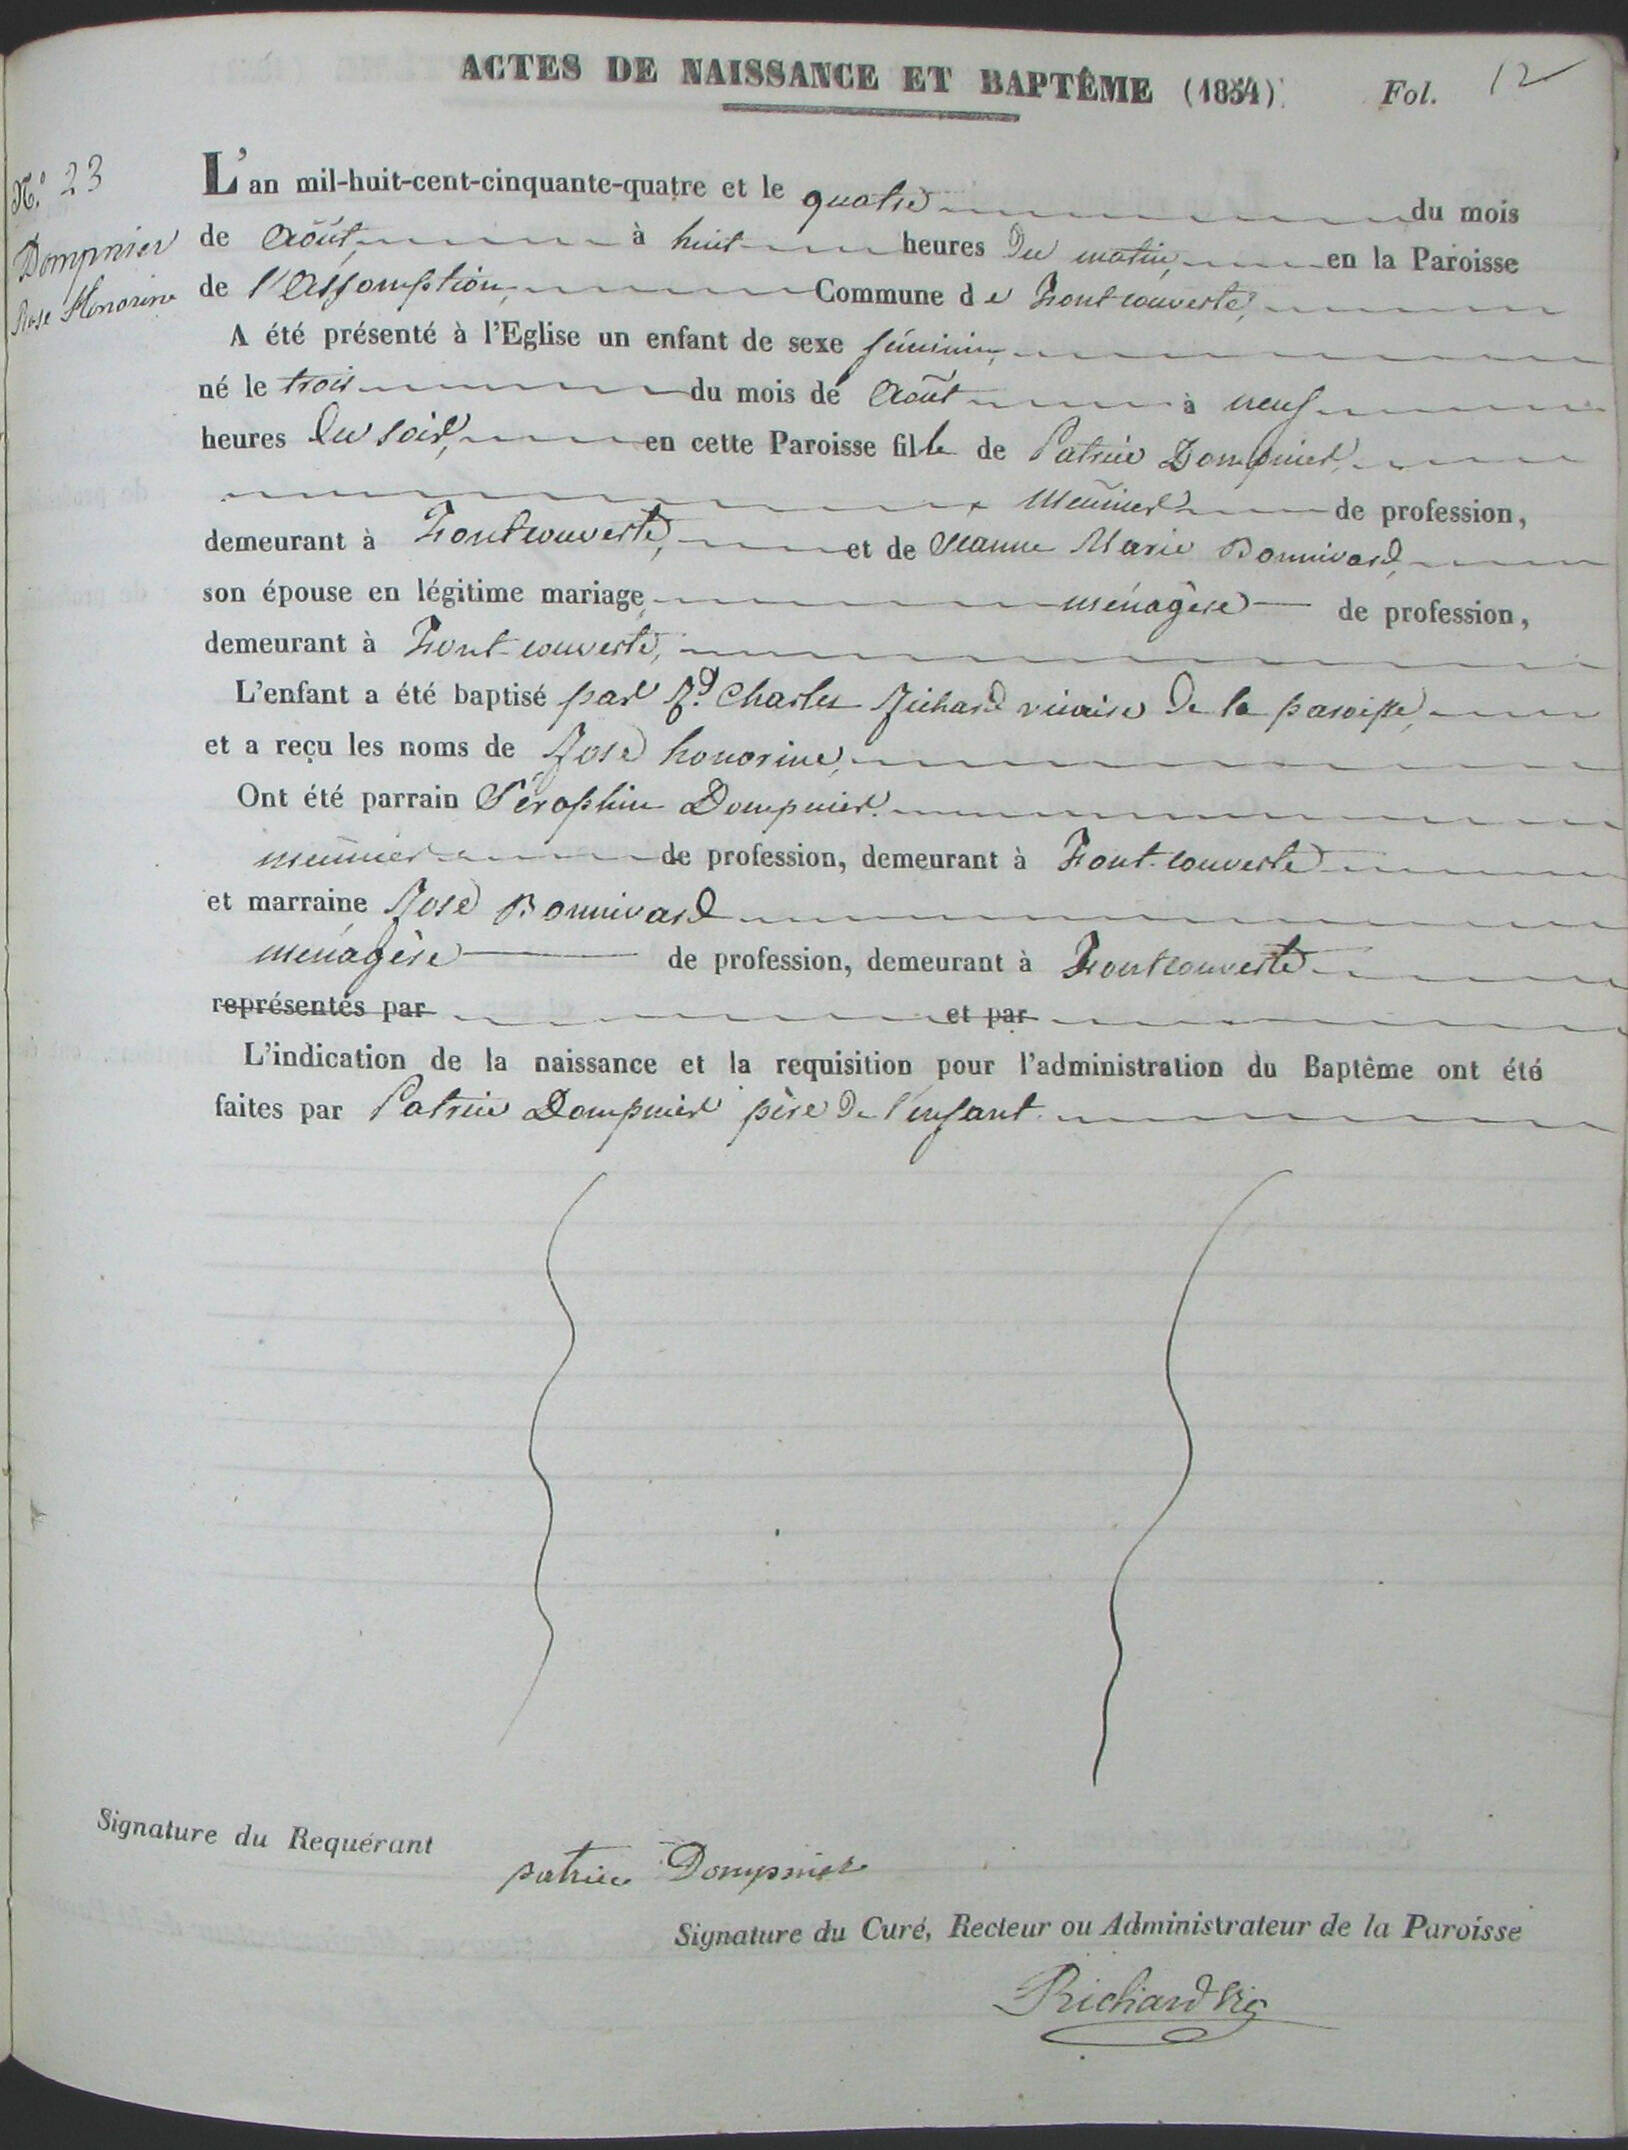 ACTES DE NAISSANCE ET BAPTÊME (1854) Fol. 12
N.º 23
Dompnier
Rose Honorine
L'an mil-huit-cent-cinquante-quatre et le quatre du mois
de Août, à huit heures du matin, en la Paroisse
de l'Assomption, Commune de Fontcouverte,
A été présenté à l'Eglise un enfant de sexe féminin,
né le trois du mois de Août à neuf
heures du soir, en cette Paroisse fille de Patrice Dompnier,
meunier de profession,
demeurant à Fontcouverte, et de Jeanne Marie Bonnivard,
son épouse en légitime mariage, ménagère de profession,
demeurant à Font-couverte,
L'enfant a été baptisé par R.d Charles Richard vicaire de la paroisse,
et a reçu les noms de Rose honorine,
Ont été parrain Séraphin Dompnier.
meunier de profession, demeurant à Font-couverte
et marraine Rose Bonnivard
ménagère de profession, demeurant à Fontcouverte
représentés par et par
L'indication de la naissance et la requisition pour l'administration du Baptême ont été
faites par Patrice Dompnier père de l'enfant
Signature du Requérant
patrice Dompnier
Signature du Curé, Recteur ou Administrateur de la Paroisse
Richard Vic